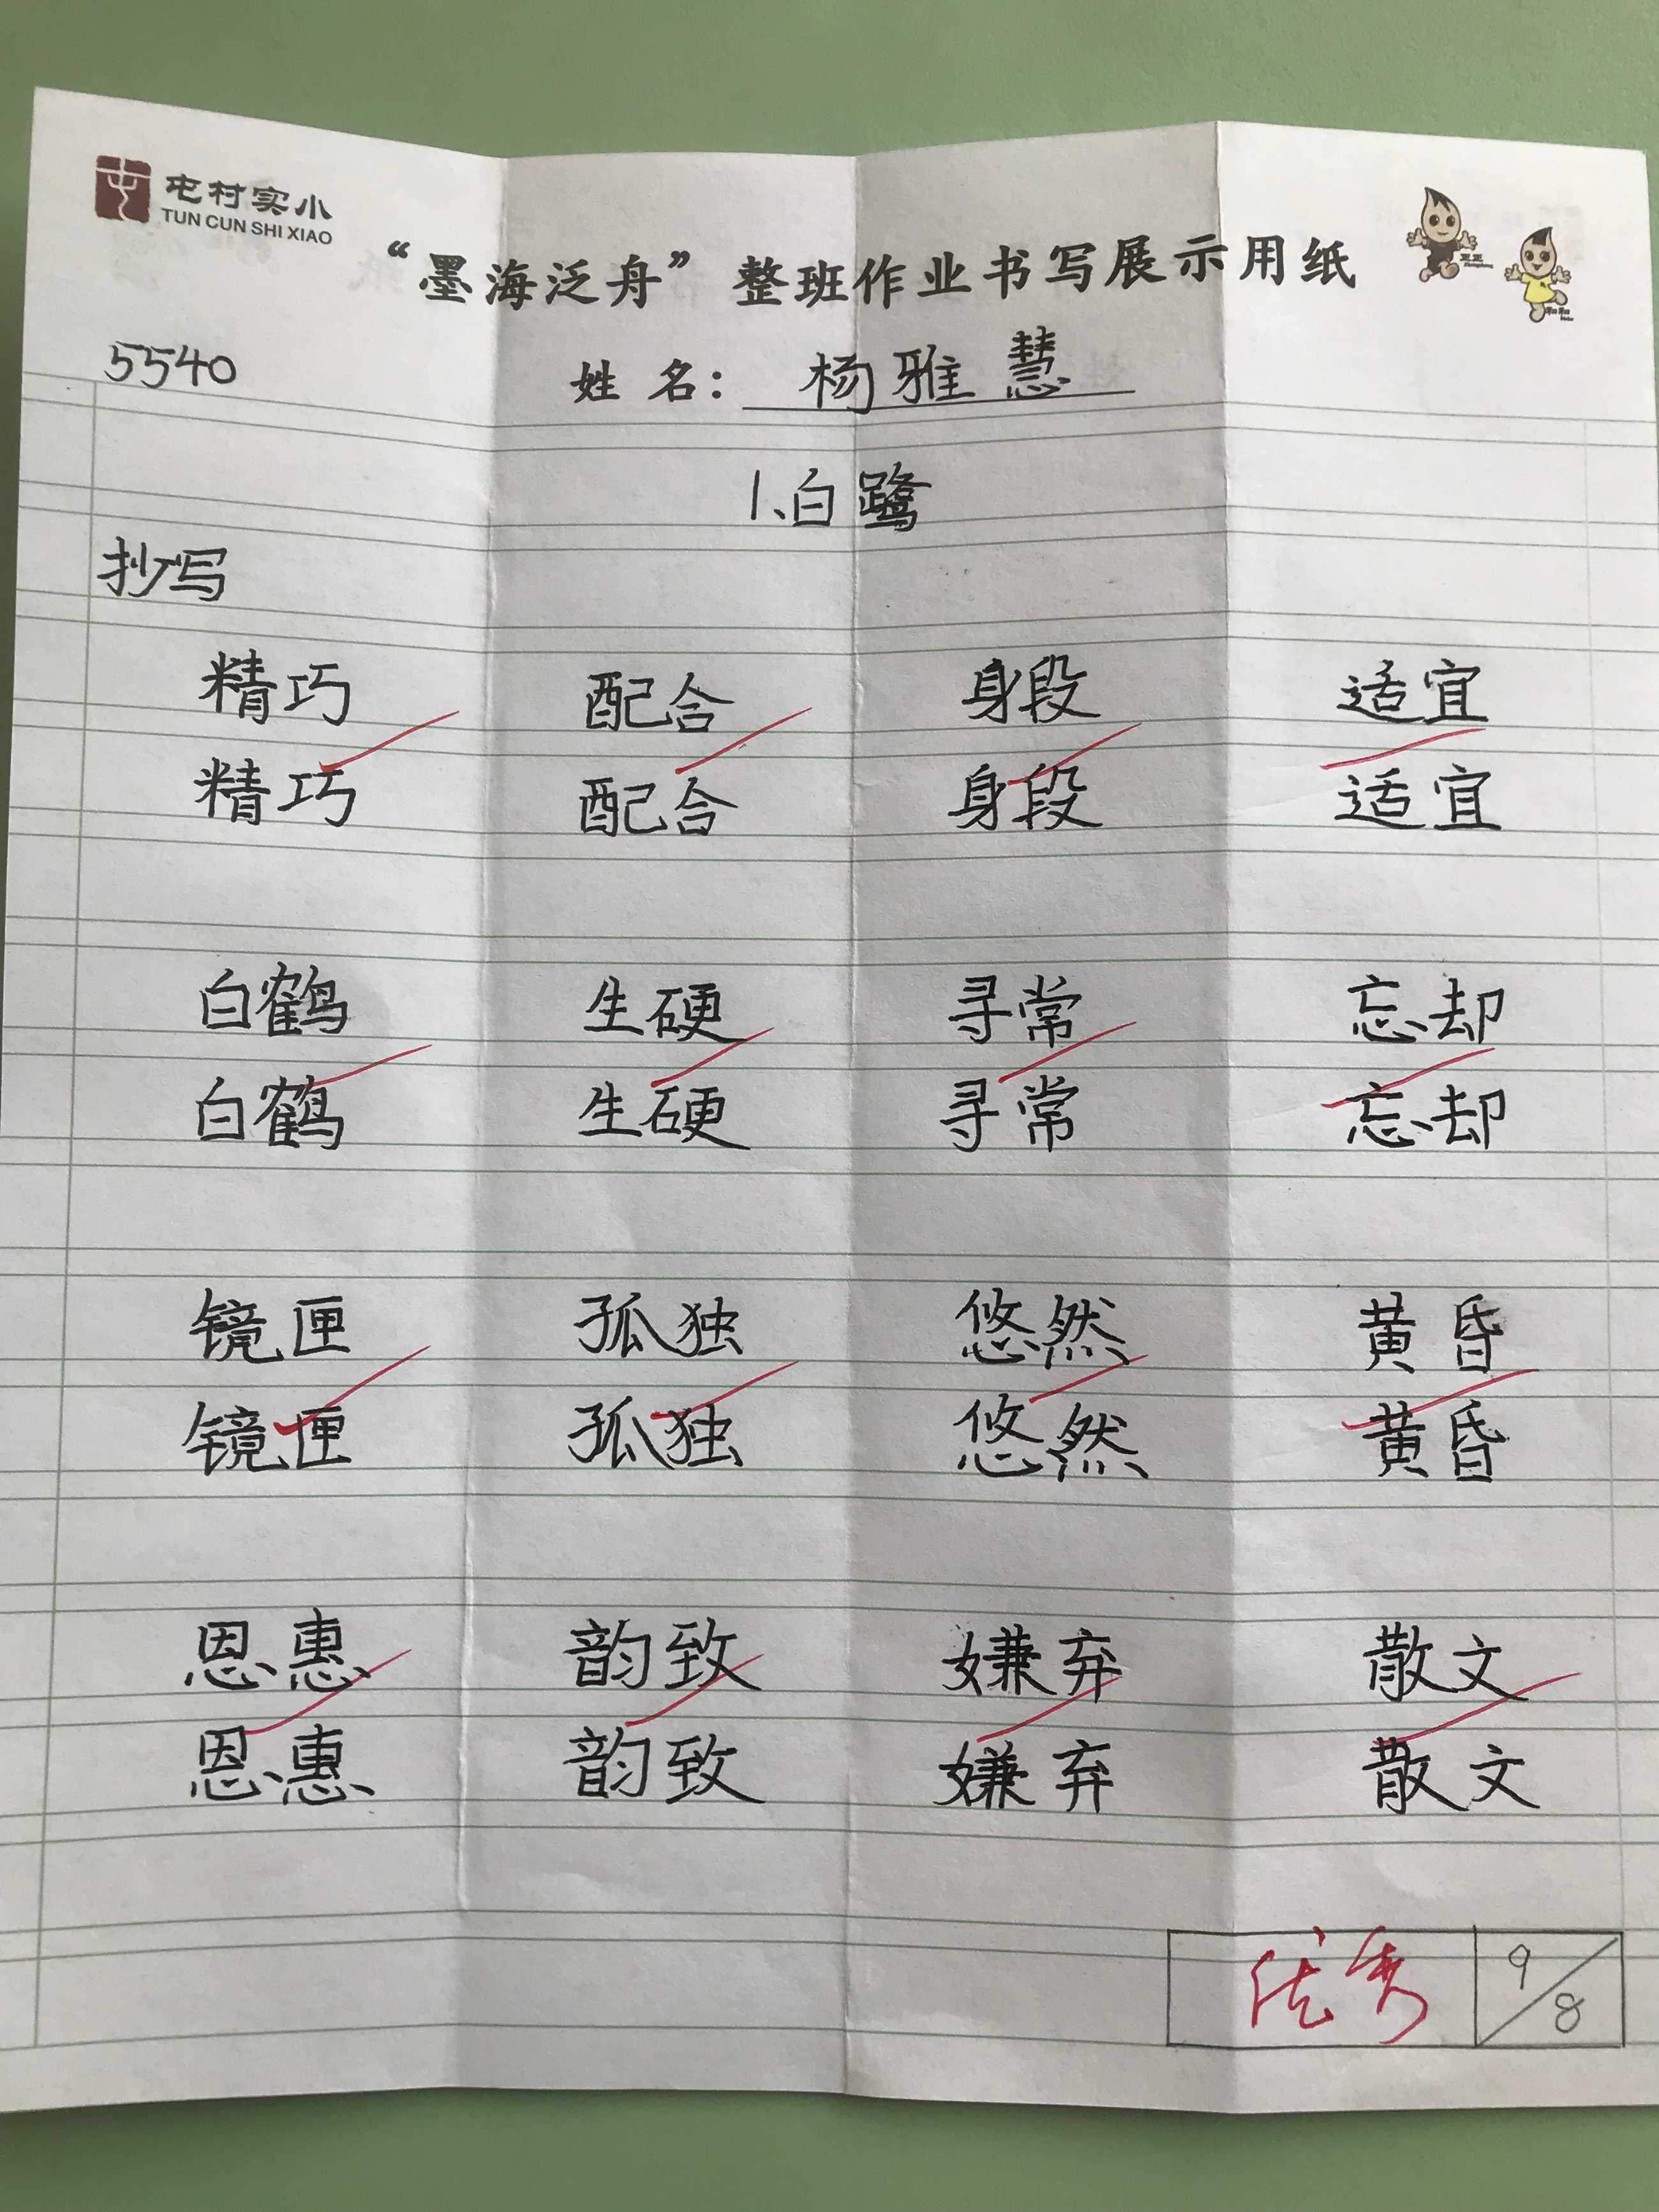 屯村实小
TUN CUN SHI XIAO
“墨海泛舟”整班作业书写展示用纸
5540 姓 名： 杨雅慧
1、白鹭
抄写
精巧 配合 身段 适宜
精巧 配合 身段 适宜
白鹤 生硬 寻常 忘却
白鹤 生硬 寻常 忘却
镜匣 孤独 悠然 黄昏
镜匣 孤独 悠然 黄昏
恩惠 韵致 嫌弃 散文
恩惠 韵致 嫌弃 散文
优秀 9/8